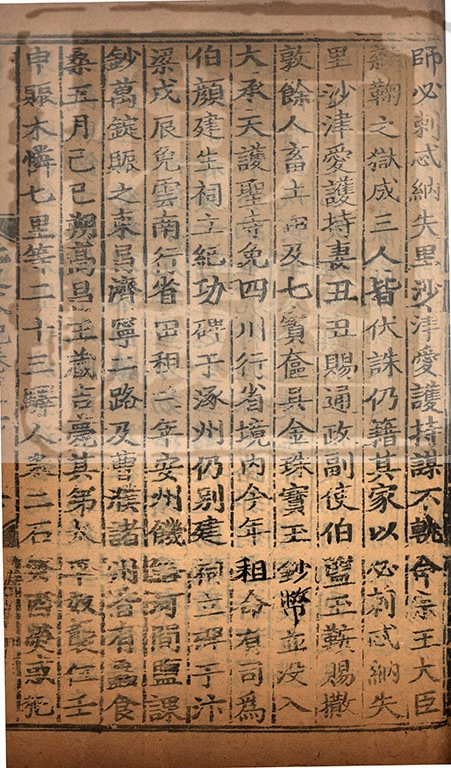 師必剌忒納失里沙津愛護持謀不軌命宗王大臣
雜鞫之獄成三人皆伏誅仍籍其家以必剌忒納失
里沙津愛護持妻丑丑賜通政副使伯藍玉鞍賜撒
敦餘人畜土田及七寶奩具金珠寶玉鈔幣並没入
大承天護聖寺免四川行省境内今年租命有司爲
伯顔建生祠立紀功碑于涿州仍别建祠立碑于汴
梁戊辰免雲南行省田租三年安州饑給河間鹽課
鈔萬錠賑之東昌濟寧二路及曹濮諸州皆有蟲食
桑五月己巳朔高昌王藏吉薨其弟太平奴襲位壬
申賑木憐七里等二十三驛人米二石癸酉熒惑犯